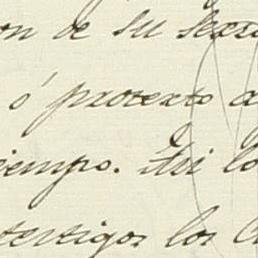 on de su sexo
ó protexto a
iempo. Asi lo
testigos los